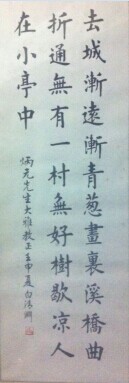 去城漸遠漸青葱畫裏溪橋曲
折通無有一村無好樹歇凉人
在小亭中
炳元先生大雅教正壬申夏白